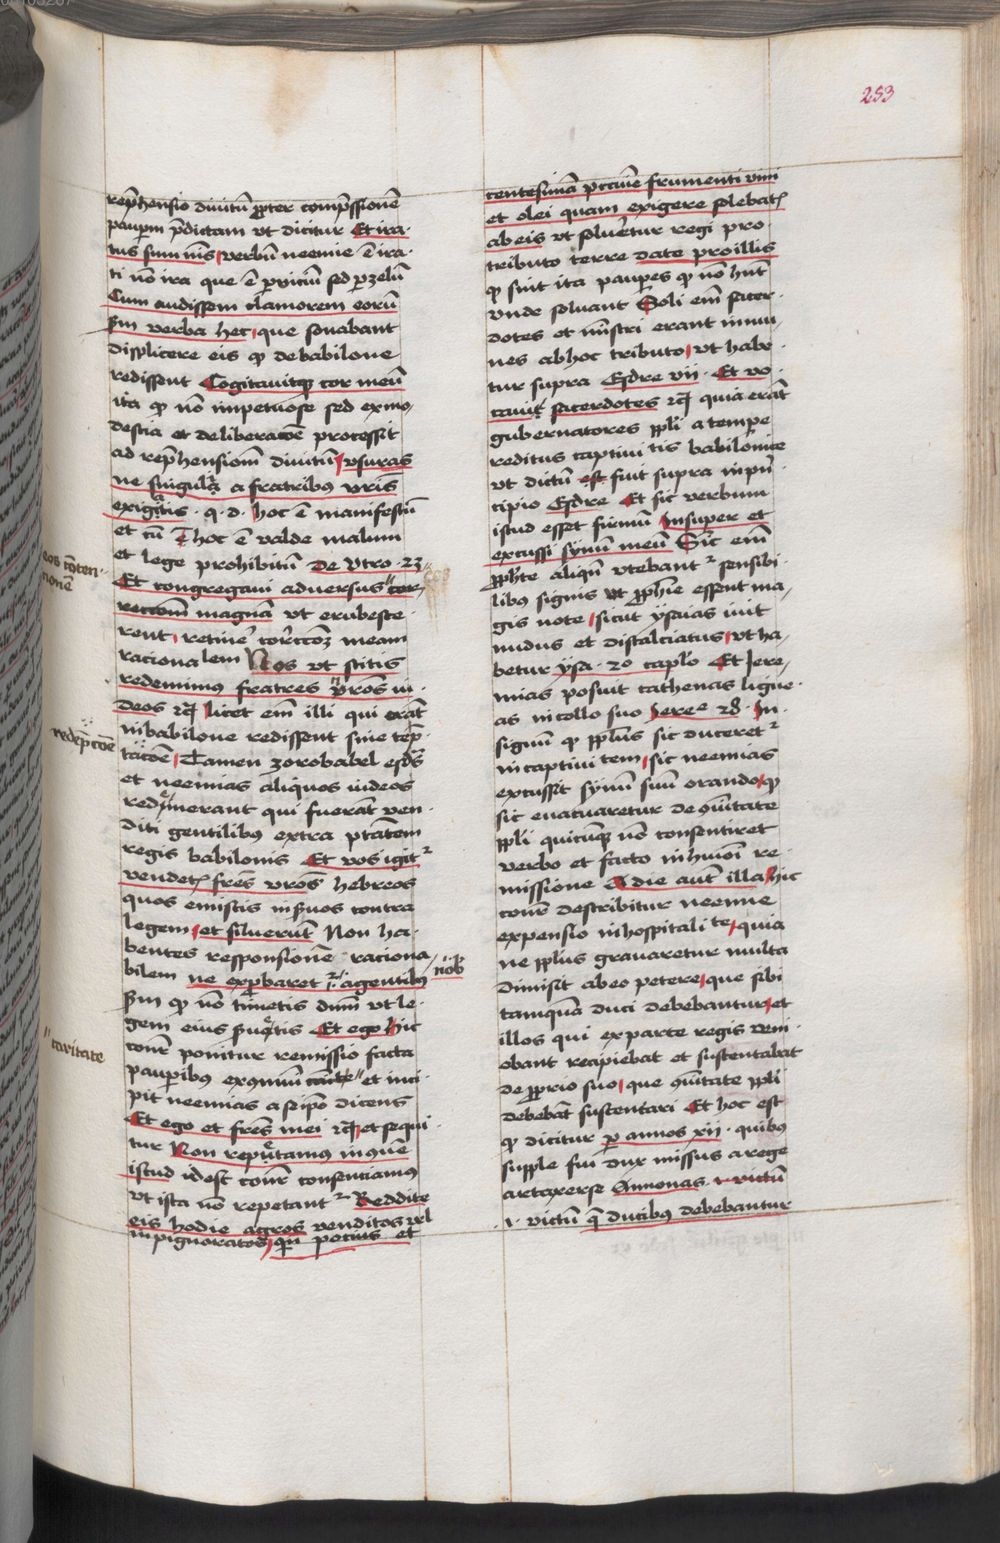 253
rep̄hensio diuitū p̱pter comp̄ssionē
paup̱m p̄dictam vt dicitur Et ira·
tus sum nīs verbū neemie ē ira·
ti nō ira que ē p̱ viciū sed p̱ zelū
Cum audissem clamorem eorū
s̄m verba hec que sonabant
displicere eis qp̱ de babilone
redissent Cogitauitqꝫ cor meū
ita qp̱ nō impetuose sed ex mo·
destia et deliberac̄oe processit
ad rep̄hensionē diuitū vsuras
ne singulꝫ a fratribus vr̄is
exigatis · q · d · hoc ē manifestū
et cū hoc ē valde malum
et lege prohibitū De vtro · 23
Et congregaui aduersus
magnā vt erubesce·
rent meam
racionalem Nos vt scitis
redemimus fratres n̄ros iu·
deos rc̄ licet em̄ illi qui erāt
in babilone redissent sine
Tamen zorobabel esdrꝫ
et neemias aliquos iudeos
redimerant qui fuerāt ven·
diti gentilibus extra ptātem
regis babilonis Et vos igitr
vendetꝭ fr̄es vr̄os hebreos
quos emistis in s̄uos contra
legem et siluerūt Non ha·
bentes responsionē raciona·
bilem ne exp̱baret agentibus
nōb
s̄m qp̱ nō timetis dūm vt le·
gem eius s̄uetis Et ego hic
cōnr ponitur remissio facta
paup̱ibus ex cōmuni et inci·
pit neemias a seip̄o dicens
Et ego et fr̄es mei rc̄ et sequi·
tur Non repetamus in cōue
istud idest cōnr consenciamus
vt ista nō repetantr Reddite
eis hodie agros venditos vel
inpignoratos qn̄ pocius et
redēpc̄oē
caritate
centesimā peccuīe frumenti vini
et olei quam exigere solebatꝭ
ab eis vt solueretur regi pro
tributo terre date pro illis
qp̱ sint ita paup̱es qp̱ nō hn̄t
vnde soluant Soli em̄ sacer·
dotes et mīstri erant immu·
nes ab hoc tributo vt habe·
tur supra Esdre vii · Et vo·
caui sacerdotes rc̄ quia erāt
gubernatores pp̄li a tempe
reditus captiuitatis babilonice
vt dictū est fuit supra in p̄n·
cipio Esdre Et sic verbum
istud esset firmū Insuper et
excussi synū meū Sic̄ em̄
pp̄hete aliqn̄ vtebantr sensibi·
libus signis vt pp̄hie essent ma·
gis note sicut ysaias iuit
nudus et discalciatus vt ha·
betur ysa · 20 capl̄o Et Jere·
mias posuit cathenas ligne·
as in collo suo Jere · 28 · In
signū qp̱ pp̄lus sic duceretr
in captiuitatem sic neemias
excussit synū suū orando qp̱
sic euacuaretur de cōitate
pp̄li quicūqꝫ nō consentiret
verbo et facto in hm̄oi re·
missione A die aut illa hic
cōnr describitur neemie
expensio in hospitalitate quia
ne pp̄lus grauaretur multa
dimisit ab eo petere que sibi
tamquā duci debebantur et
illos qui ex parte regis veni·
ebant recipiebat et sustentabat
de p̱prio suo que cōitate pp̄li
debebāt sustentari Et hoc est
qp̱ dicitur p̱ annos xii · quibus
supple fui dux missus a rege
artaxerse Annonas · i · victū
· i · victū q̄ ducibus debebantur